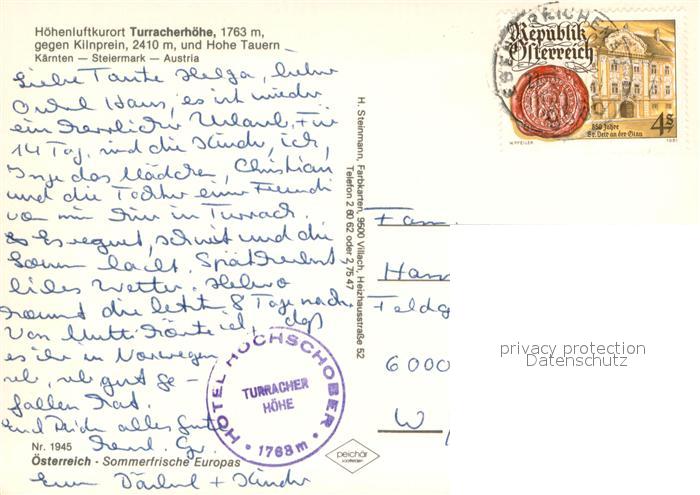 Höhenluftkurort Turracherhöhe, 1763 m,
gegen Kilnprein, 2410 m, und Hohe Tauern
Kärnten — Steiermark — Austria
Liebe Tante Helga, lieber
Onkel Hans, es ist wieder
ein herrlicher Urlaub. Für
14 Tag. sind die Kinder, ich,
Inge das Mädchen, Christian
und die Tochter einer Freundin
von mir hier in Turrach.
Es regnet, schneit und die
Sonne lacht. Spätherbst
liches Wetter.
kommt die letzten 8 Tage nach.
Von Mutti hörte ich, daß
es ihr in Norwegen
gut ge-
fallen hat.
Euch alles Gute
Eure Bärbel + Kinder
HOTEL HOCHSCHOBER
TURRACHER
HÖHE
1763 m
Nr. 1945
Österreich - Sommerfrische Europas
peichär
H. Steinmann, Farbkarten, 9500 Villach, Heizhausstraße 52
Telefon 2 80 62 oder 2 75 47
Republik
Österreich
850 Jahre
St. Veit an der Glan
4 S
W. PFEILER
1981
Fam.
Han
Feldg
6000
W
privacy protection
Datenschutz